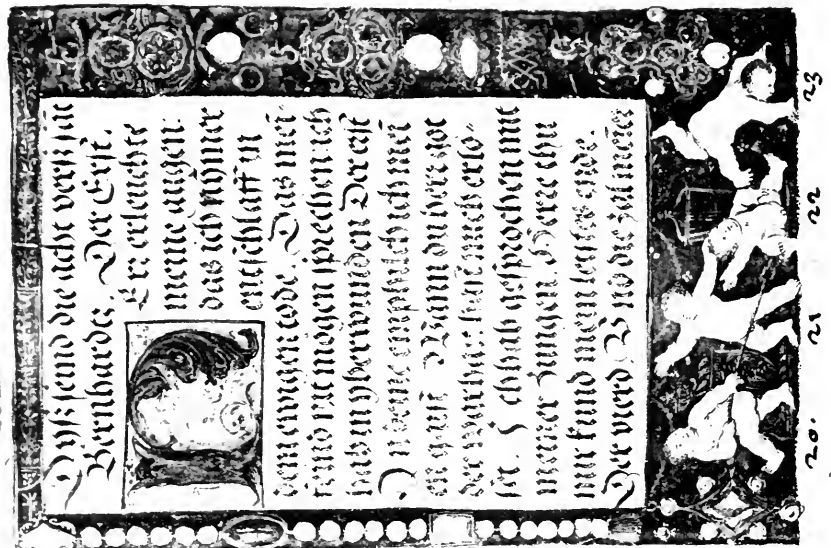 Dyß seind die acht verß sãt
Bernhardz. Der Erst.
Err erleuchte
meine augen
das ich nymer
entschlaff in
dem ewigen tode. Das mei-
feind nit mogen sprechen ich
hab in yberwunden Der erst
In deine empfilch ich mei
en gaist Wann du herr got
der warhait hast mich erlo-
ßt. Ich hab gesprochen mit
meiner zungen. Herre thu
mir kund mein letstes ende.
Der vierd Und die zal meiner
20. 21 22 23